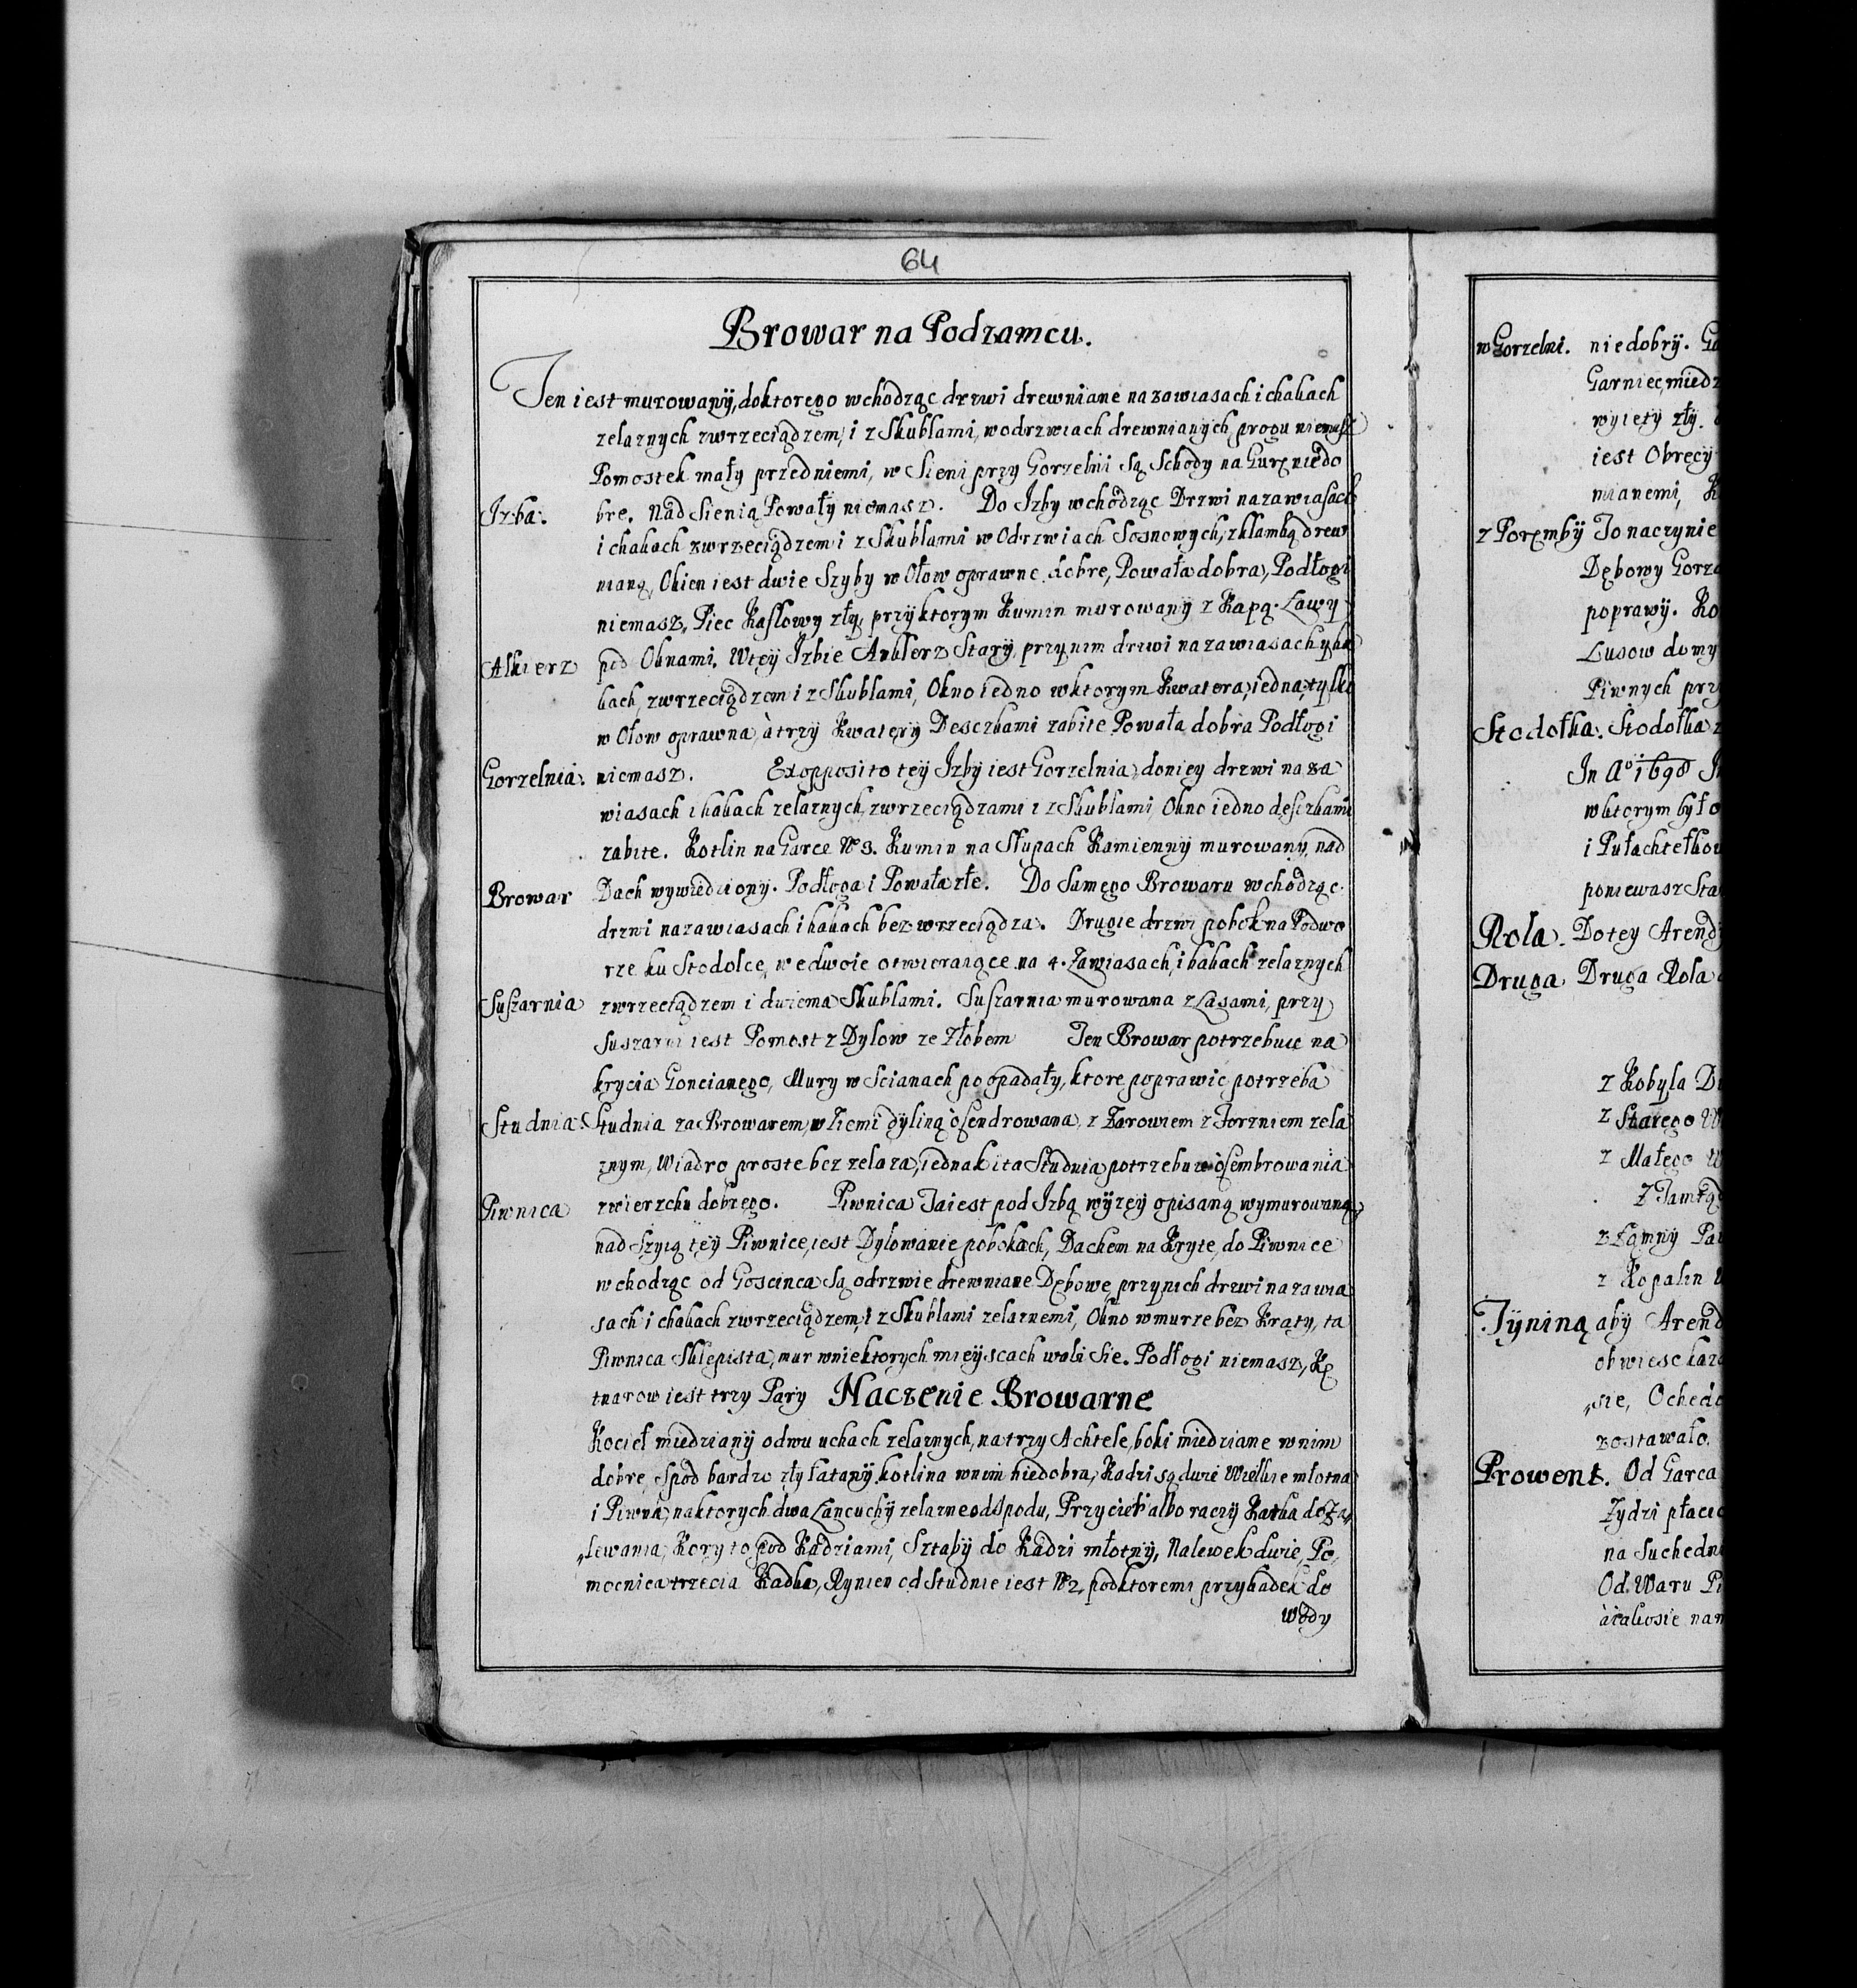 64
Browar na Podzamcu.
Ten iest murowanÿ, do ktorego wchodząc drzwi drewniane na zawiasach i chakach
zelaznych z wrzeciądzem, i z Skublami, w odrzwiach drewnianych, progu niemasz
Pomostek mały przedniemi, w Sieni przy Gorzelni Są Schody na Gurę niedo
Izba. bre. Nad Sienią Powały niemasz. Do Izby wchodząc Drzwi na zawiasach
i chakach z wrzeciądzem i z Skublami w Odrzwiach Sosnowych, z klamką drew
nianą, Okien iest dwie Szyby w Ołow oprawne dobre, Powała dobra, Podłogi
niemasz, Piec Kaflowy zły, przÿ ktorym Kumin murowany z Kapą. Ławy
Alkierz pod Oknami. W teÿ Izbie Alkierz Starÿ, przy nim drzwi na zawiasach y ha
kach, z wrzeciądzem i z Skublami, Okno iedno w ktorym Kwatera, iedna, tylko
w Ołow oprawna, à trzy Kwatery Desczkami zabite Powała dobra Podłogi
Gorzelnia. niemasz. Ex opposito teÿ Izbÿ iest Gorzelnia, do niey drzwi na za
wiasach i hakach zelaznych, z wrzeciądzami i z Skublami, Okno iedno desczkami
zabite. Kotlin na Garce No 3. Kumin na Słupach Kamiennÿ murowany, nad
Browar Dach wywiedziony. Podłoga i Powała złe. Do Samego Browaru wchodząc
drzwi na zawiasach i hakach bez wrzeciądza. Drugie drzwi pobok na Podwo
rze ku Stodolce, we dwoie otwieraiące na 4. Zawiasach, i hakach zelaznych
Suszarnia z wrzeciądzem i dwiema Skublami. Suszarnia murowana z Lasami, przy
Suszarni iest Pomost z Dylow ze Złobem Ten Browar potrzebuie na
krycia Goncianego, Mury w Scianach poopadały, ktore poprawic potrzeba
Studnia. Studnia za Browarem, w Ziemi dÿliną osendrowana, z Zarowiem z Forzniem zela
znym, Wiadro proste bez zelaza, iednak i ta Studnia potrzebuie osembrowania
Piwnica z wierzchu dobrego. Piwnica Ta iest pod Izbą wÿzeÿ opisaną wymurowaną,
nad Szyią teÿ Piwnice, iest Dylowanie pobokach, Dachem na Kryte, do Piwnice
wchodząc od Goscinca Są odrzwie drewniane Dębowe, przy nich drzwi na zawia
sach i chakach z wrzeciądzem, i z Skublami zelaznemi, Okno w murze bez Kraty, ta
Piwnica Sklepista, mur w niektorych mieÿscach wali Sie. Podłogi niemasz, Kę
tnarow iest trzy Pary Naczenie Browarne
Kocieł miedzianÿ o dwu uchach zelaznych, na trzy Achtele, boki miedziane w nim
dobre, Spod bardzo zły łatanÿ, kotlina w nim niedobra, Kadzi są dwie Wielkie młotna
i Piwna, na ktorych dwa Łancuchÿ zelazne od Spodu, Przycieł albo raczÿ Kadka do Za„
„lewania, Koryto pod Kadziami, Sztabÿ do Kadzi młotnÿ, Nalewek dwie, Po„
mocnica trzecia Kadka, Rynien od Studnie iest No 2, pod ktoremi przykadek do
wody
w Gorzelni. niedobrÿ.
Garniec, miedz
wyięty zły.
iest Obręcy
mianemi,
z Porembÿ To naczynie
Dębowy Gorz
poprawÿ. Ko
Lusow domy
Piwnych prz
Stodołka. Stodołka z
In Ao 1698
w ktorym był o
i Pułachtełkow
poniewasz Sta
Rola. Do tey Arend
Druga Druga Rola
z Kobyla
z Starego
z Małego
Z Tamtąd
z Łamny
z Kopalin
Tÿniną abÿ Arend
obwiesc kaz
„sie, Ochędo
zostawało.
Prowent. Od Garca
Zydzi płac
na Suchedn
Od Waru
à iakosie